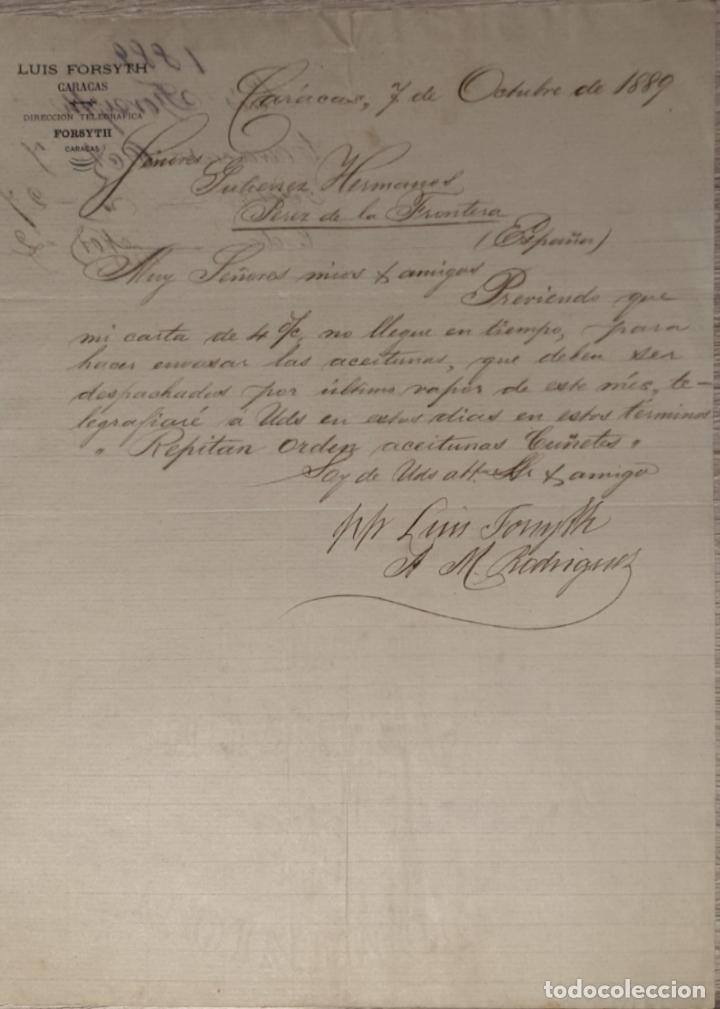 LUIS FORSYTH
CARACAS
DIRECCION TELEGRAFICA
FORSYTH
CARACAS
Carácas, 7 de Octubre de 1889
Señores
Gutierrez Hermanos
Jerez de la Frontera
(España)
Muy Señores mios & amigos
Previendo que
mi carta de 4 % no llegue en tiempo, para
hacer envasar las aceitunas, que deben ser
despachadas por último vapor de este mes, te-
legrafiaré á Uds en estos dias en estos términos
" Repitan orden aceitunas Cuñetes "
Soy de Uds att. & amigo
pp Luis Forsyth
A M. Rodriguez
todocoleccion.net